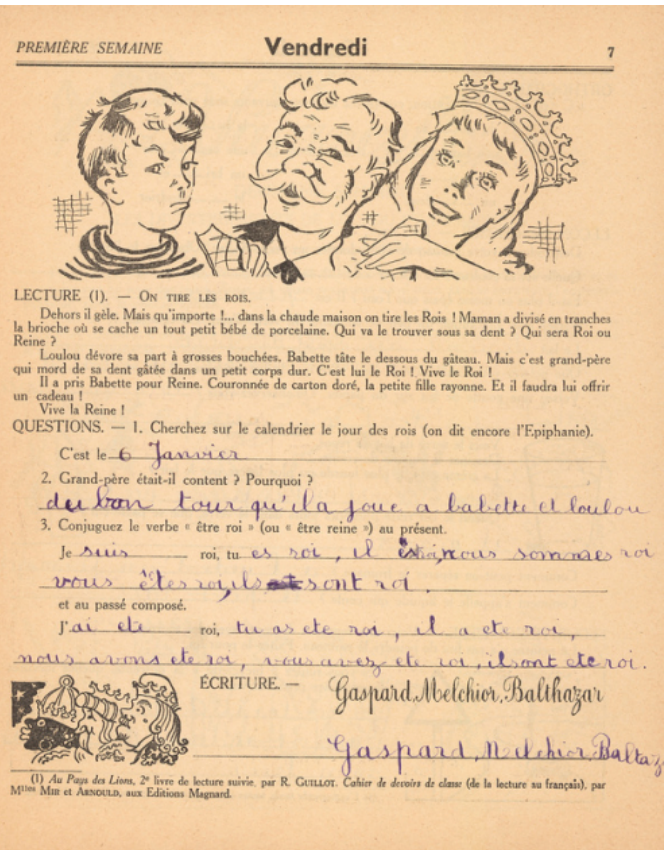 PREMIÈRE SEMAINE Vendredi 7
LECTURE (1). — ON TIRE LES ROIS.
Dehors il gèle. Mais qu'importe !... dans la chaude maison on tire les Rois ! Maman a divisé en tranches
la brioche où se cache un tout petit bébé de porcelaine. Qui va le trouver sous sa dent ? Qui sera Roi ou
Reine ?
Loulou dévore sa part à grosses bouchées. Babette tâte le dessous du gâteau. Mais c'est grand-père
qui mord de sa dent gâtée dans un petit corps dur. C'est lui le Roi ! Vive le Roi !
Il a pris Babette pour Reine. Couronnée de carton doré, la petite fille rayonne. Et il faudra lui offrir
un cadeau !
Vive la Reine !
QUESTIONS. — 1. Cherchez sur le calendrier le jour des rois (on dit encore l'Epiphanie).
C'est le 6 Janvier
2. Grand-père était-il content ? Pourquoi ?
du bon tour qu'il a joue a babette et loulou
3. Conjuguez le verbe « être roi » (ou « être reine ») au présent.
Je suis roi, tu es roi, il est roi, nous sommes roi
vous êtes roi, ils sont roi.
et au passé composé.
J'ai ete roi, tu as ete roi, il a ete roi,
nous avons ete roi, vous avez ete roi, ils ont ete roi.
ÉCRITURE. — Gaspard, Melchior, Balthazar
Gaspard, Melchior, Baltaz
(1) Au Pays des Lions, 2e livre de lecture suivie, par R. GUILLOT. Cahier de devoirs de classe (de la lecture au français), par
Mlles MIR et ARNOULD, aux Editions Magnard.